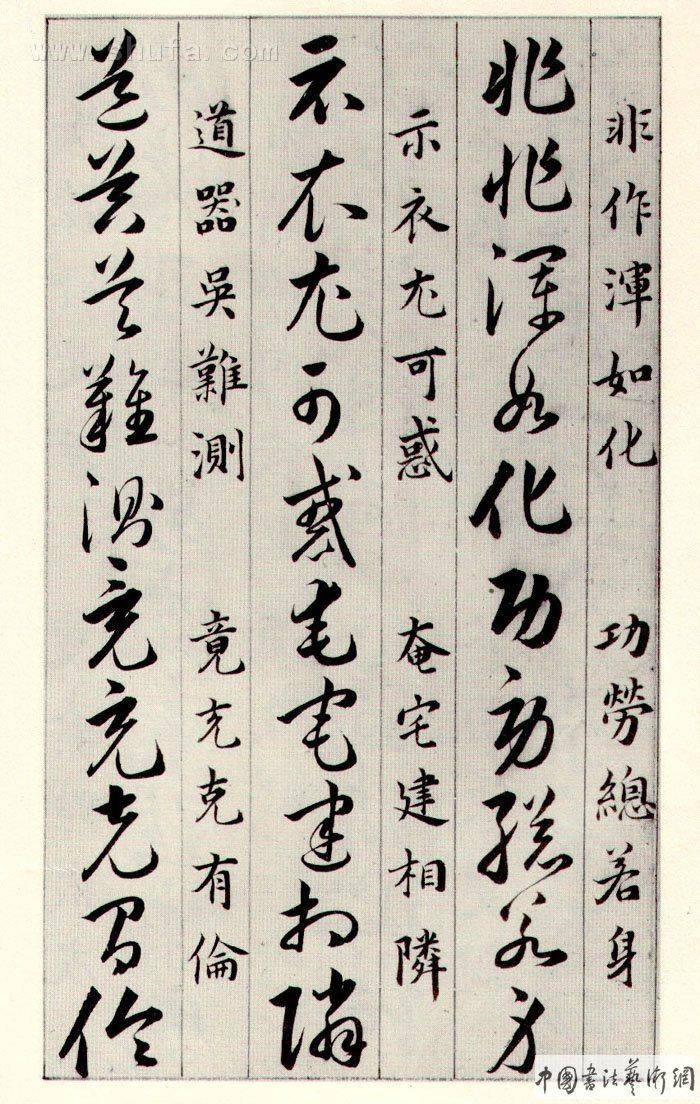 www.shufa.com
非作渾如化 功勞總若身
非作渾如化功勞總若身
示衣尤可惑 奄宅建相隣
示衣尤可惑奄宅建相隣
道器吳難測 竟充克有倫
道器吳難測竟充克有倫
中國書法藝術網